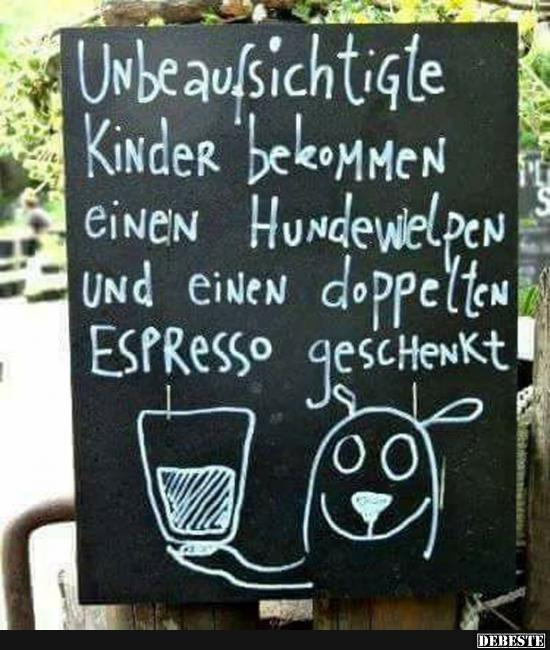 Unbeaufsichtigte
Kinder bekommen
einen Hundewelpen
und einen doppelten
Espresso geschenkt
DEBESTE